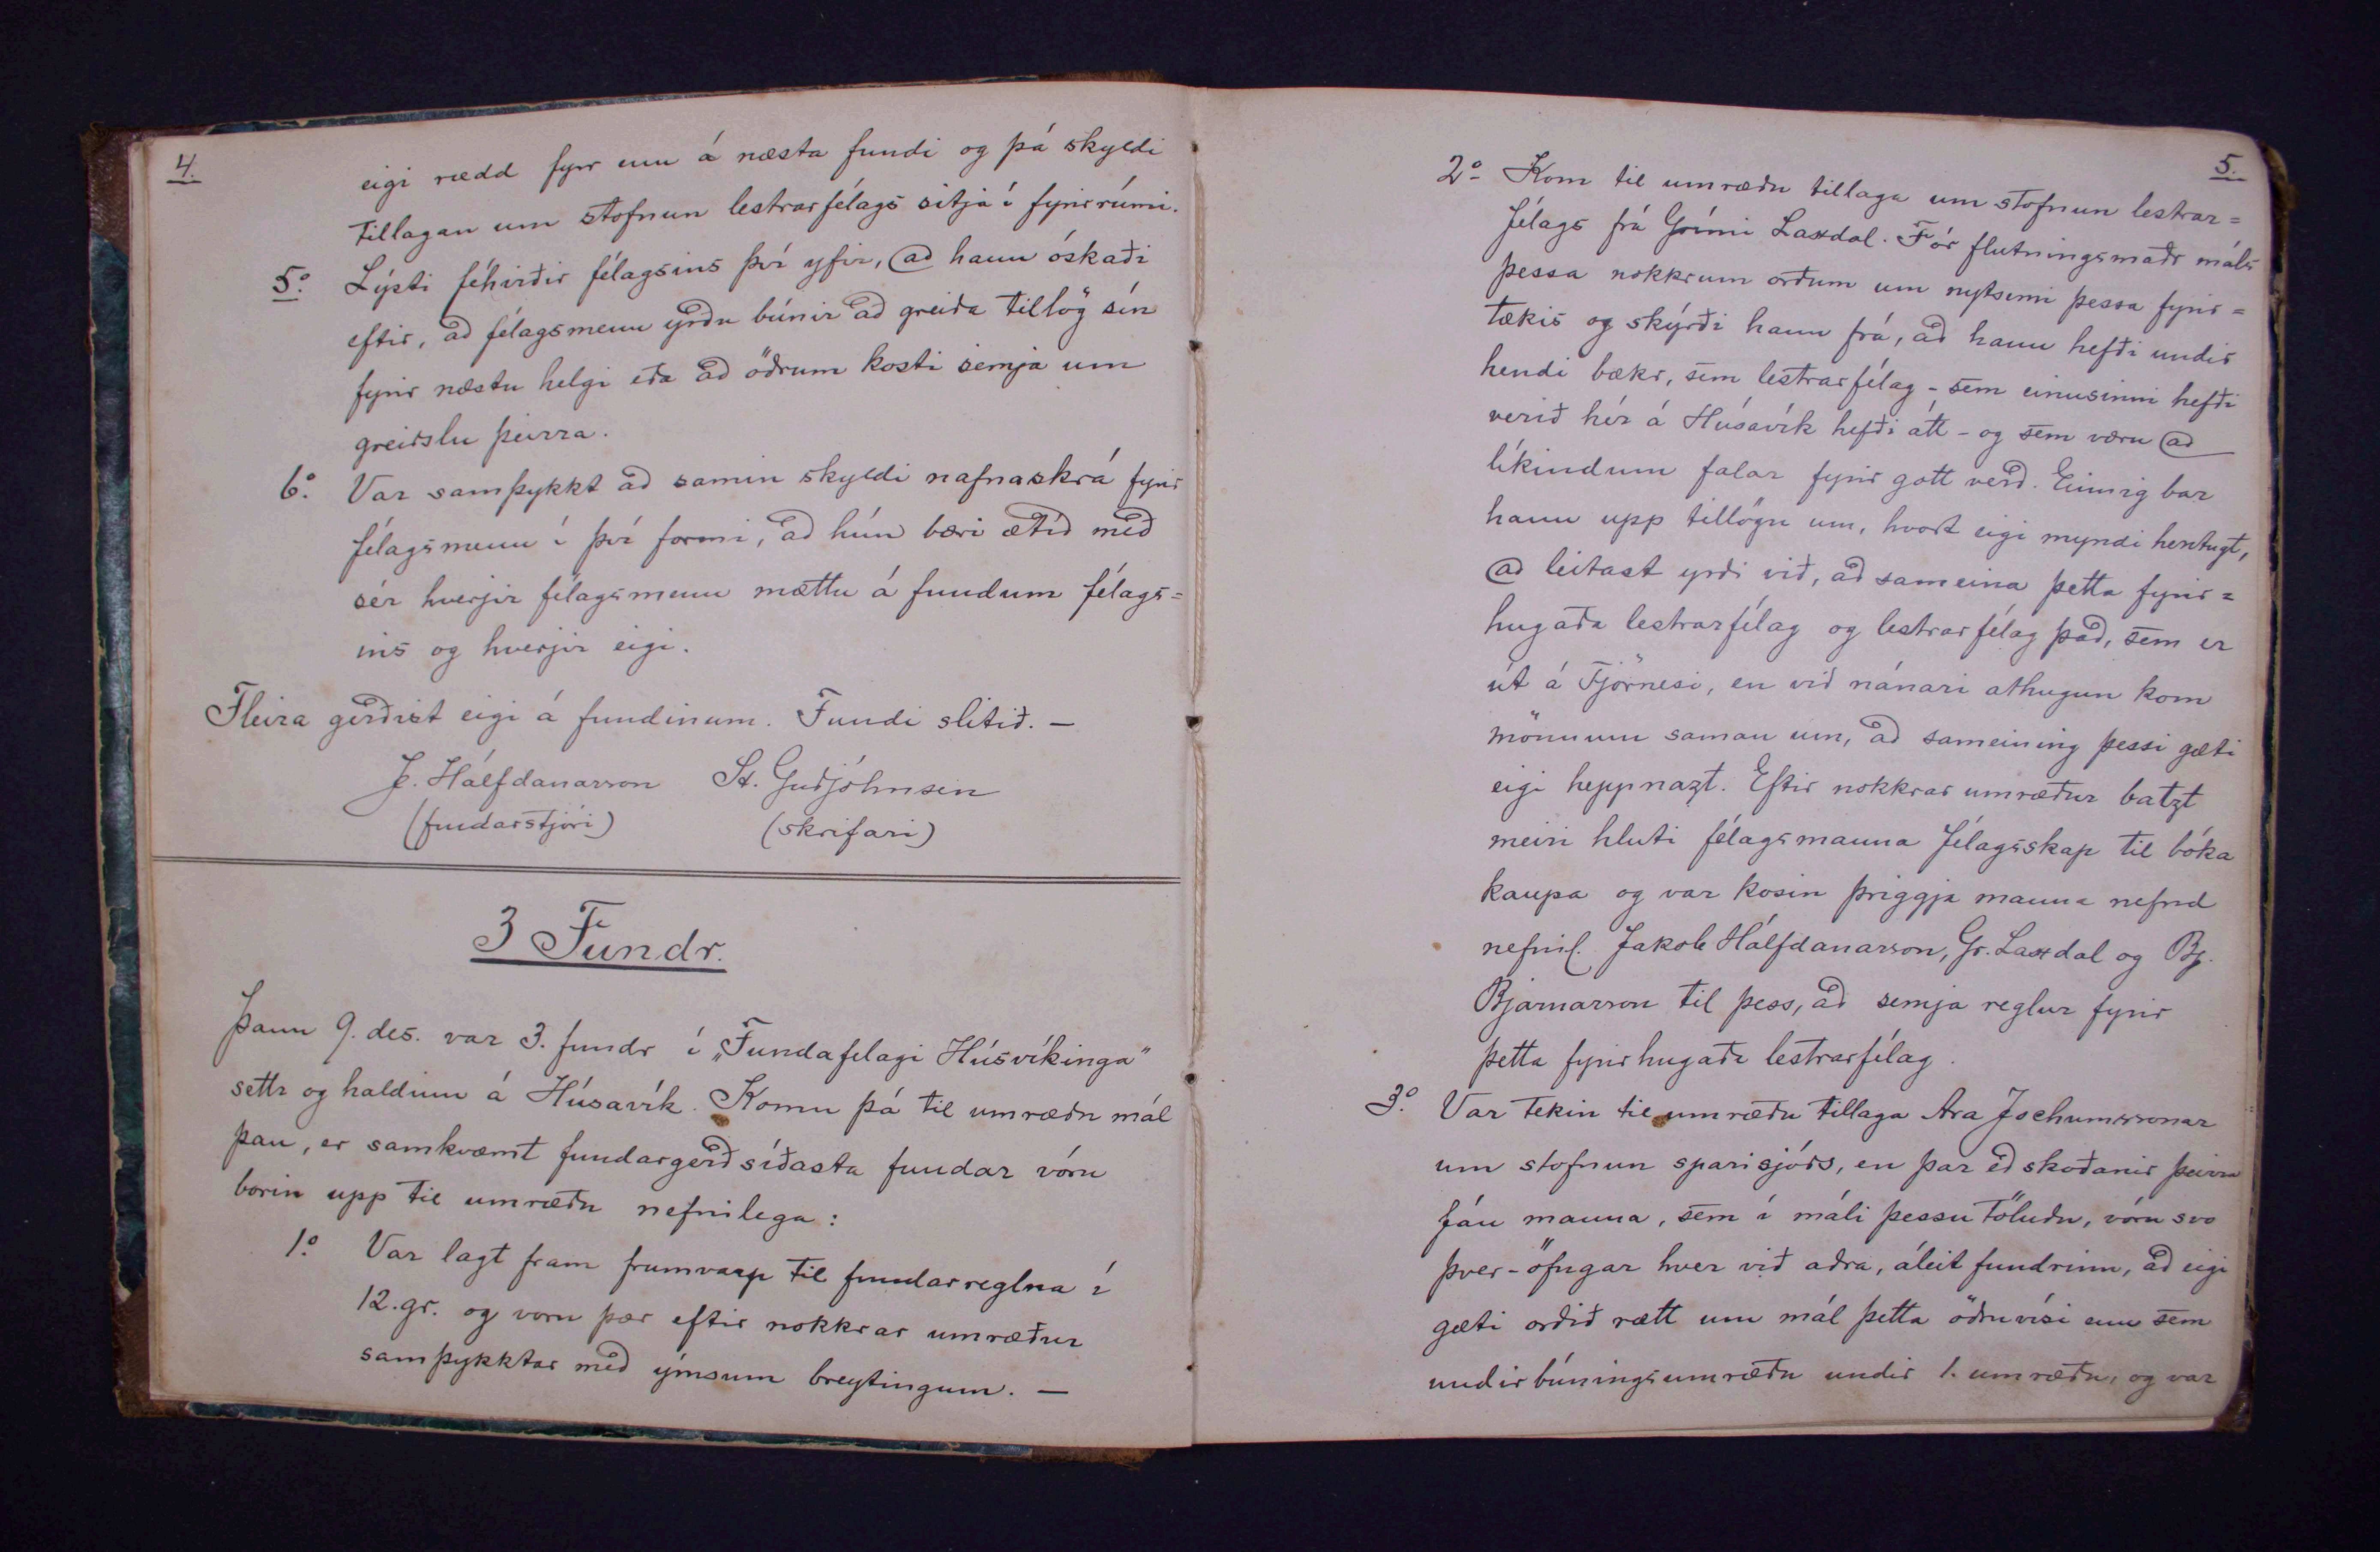 4.
eigi rædd fyrr enn á næsta fundi og þá skyldi
tillagan um stofnun lestrarfélags sitja í fyrirrúmi.
5.° Lýsti féhirðir félagsins því yfir, að hann óskaði
eftir, að félagsmenn yrðu búnir að greiða tillög sín
fyrir næstu helgi eða að öðrum kosti semja um
greiðslu þeirra.
6.° Var samþykkt að samin skyldi nafnaskrá fyrir
félagsmenn í því formi, að hún bæri ætíð með
sér hverjir félagsmenn mættu á fundum félags=
ins og hverjir eigi.
Fleira gerðist eigi á fundinum. Fundi slitið. —
J. Hálfdanarson St. Guðjohnsen
(fundarstjóri) (skrifari)
3 Fundr.
Þann 9. des. var 3. fundr í „Fundafelagi Húsvíkinga"
settr og haldinn á Húsavík. Komu þá til umræðu mál
þau, er samkvæmt fundargerð síðasta fundar vóru
borin upp til umræðu nefnilega:
1.° Var lagt fram frumvarp til fundarreglna í
12. gr. og voru þær eftir nokkrar umræður
samþykktar með ýmsum breytingum. —
5.
2.° Kom til umræðu tillaga um stofnun lestrar=
félags frá Grími Laxdal. Fór flutningsmaðr máls
þessa nokkrum orðum um nytsemi þessa fyrir=
tækis og skýrði hann frá, að hann hefði undir
hendi bækr, sem lestrarfélag - sem einusinni hefði
verið hér á Húsavík hefði átt - og sem væru að
líkindum falar fyrir gott verð. Einnig bar
hann upp tillögu um, hvort eigi myndi hentugt,
að leitast yrði við, að sameina þetta fyrir=
hugaða lestrarfélag og lestrarfélag það, sem er
út á Tjörnesi, en við nánari athugun kom
mönnum saman um, að sameining þessi gæti
eigi heppnazt. Eftir nokkrar umræður batzt
meiri hluti félagsmanna félagsskap til bóka
kaupa og var kosin þriggja manna nefnd
nefnil. Jakob Hálfdanarson, Gr. Laxdal og Bj.
Bjarnarson til þess, að semja reglur fyrir
þetta fyrirhugaða lestrarfélag.
3.° Var tekin til umræðu tillaga Ara Jochumssonar
um stofnun sparisjóðs, en þar eð skoðanir þeirra
fáu manna, sem í máli þessu töluðu, vóru svo
þver-öfugar hver við aðra, áleit fundrinn, að eigi
gæti orðið rætt um mál þetta öðruvísi enn sem
undirbúningsumræðu undir 1. umræðu, og var